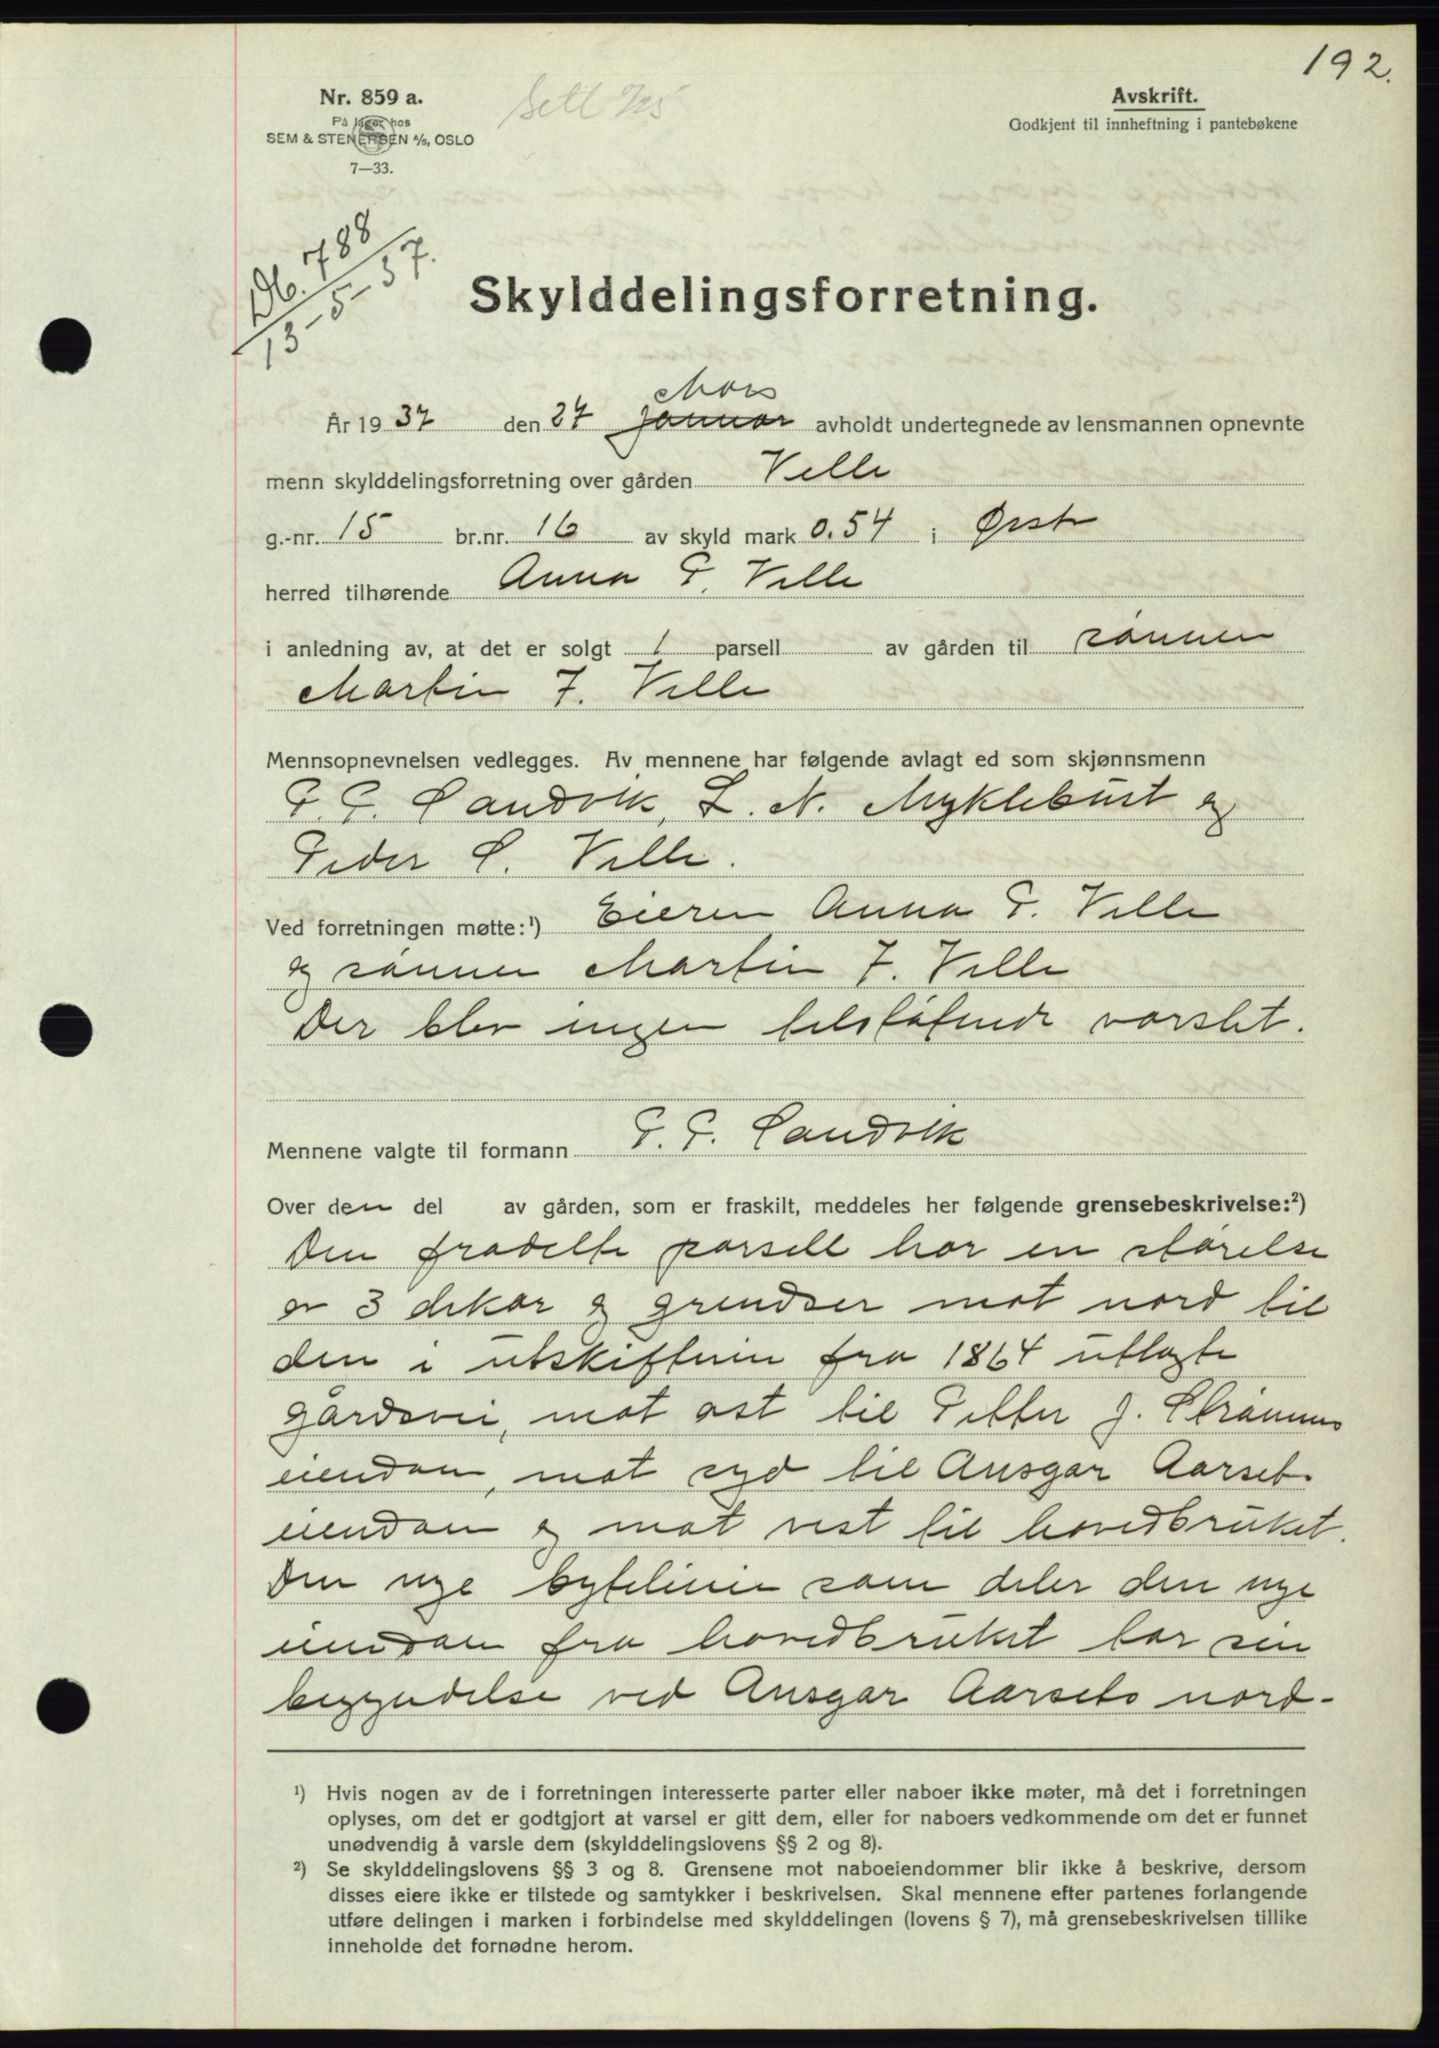 192.
Nr. 859 a.
På lager hos
SEM & STENERSEN A/S, OSLO
7—33.
Sett 7/25
Avskrift.
Godkjent til innheftning i pantebøkene
Db. 788
13-5-37.
Skylddelingsforretning.
Mars
År 1937 den 27 januar avholdt undertegnede av lensmannen opnevnte
menn skylddelingsforretning over gården Velle
g.-nr. 15 br.nr. 16 av skyld mark 0.54 i Ørsta
herred tilhørende Anna P. Velle
i anledning av, at det er solgt 1 parsell av gården til sønnen
Martin J. Velle
Mennsopnevnelsen vedlegges. Av mennene har følgende avlagt ed som skjønnsmenn
P. P. Sandvik, L. N. Myklebust og
Peder S. Velle.
Ved forretningen møtte:¹) Eieren Anna P. Velle
og sønnen Martin J. Velle
Der blev ingen tilstøtende varslet.
Mennene valgte til formann P. P. Sandvik
Over den del av gården, som er fraskilt, meddeles her følgende grensebeskrivelse:²)
Den fradelte parsell har en størelse
av 3 dekar og grendser mot nord til
den i utskiftnin fra 1864 utlagte
gårdsvei, mot øst til Petter J. Strømms
eiendom, mot syd til Ansgar Aarsets
eiendom og mot vest til hovedbruket.
Den nye bytelinie som deler den nye
eiendom fra hovedbruket tar sin
begyndelse ved Ansgar Aarsets nord-
¹) Hvis nogen av de i forretningen interesserte parter eller naboer ikke møter, må det i forretningen
oplyses, om det er godtgjort at varsel er gitt dem, eller for naboers vedkommende om det er funnet
unødvendig å varsle dem (skylddelingslovens §§ 2 og 8).
²) Se skylddelingslovens §§ 3 og 8. Grensene mot naboeiendommer blir ikke å beskrive, dersom
disses eiere ikke er tilstede og samtykker i beskrivelsen. Skal mennene efter partenes forlangende
utføre delingen i marken i forbindelse med skylddelingen (lovens § 7), må grensebeskrivelsen tillike
inneholde det fornødne herom.